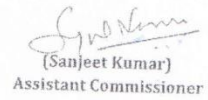 (Sanjeet Kumar)
Assistant Commissioner